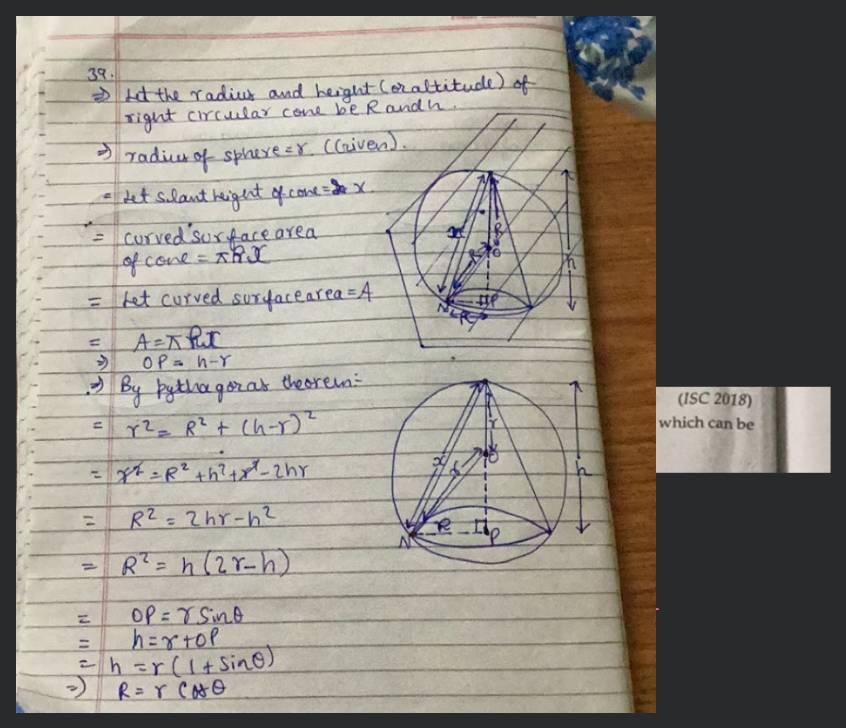 39.
⇒ Let the radius and height (or altitude) of
right circular cone be R and h.
⇒ radius of sphere = r. (Given).
= Let slant height of cone = x
= curved surface area
of cone = πRx
= Let curved surface area = A
= A = πRx
⇒ OP = h-r
⇒ By pythagoras theorem:-
= r² = R² + (h-r)²
= r² = R² + h² + r² - 2hr
= R² = 2hr - h²
= R² = h(2r-h)
= OP = r Sinθ
= h = r + OP
= h = r(1 + sinθ)
⇒ R = r Cosθ
x
R
O
h
N
P
R
r
x
O
h
N
R
P
(ISC 2018)
which can be